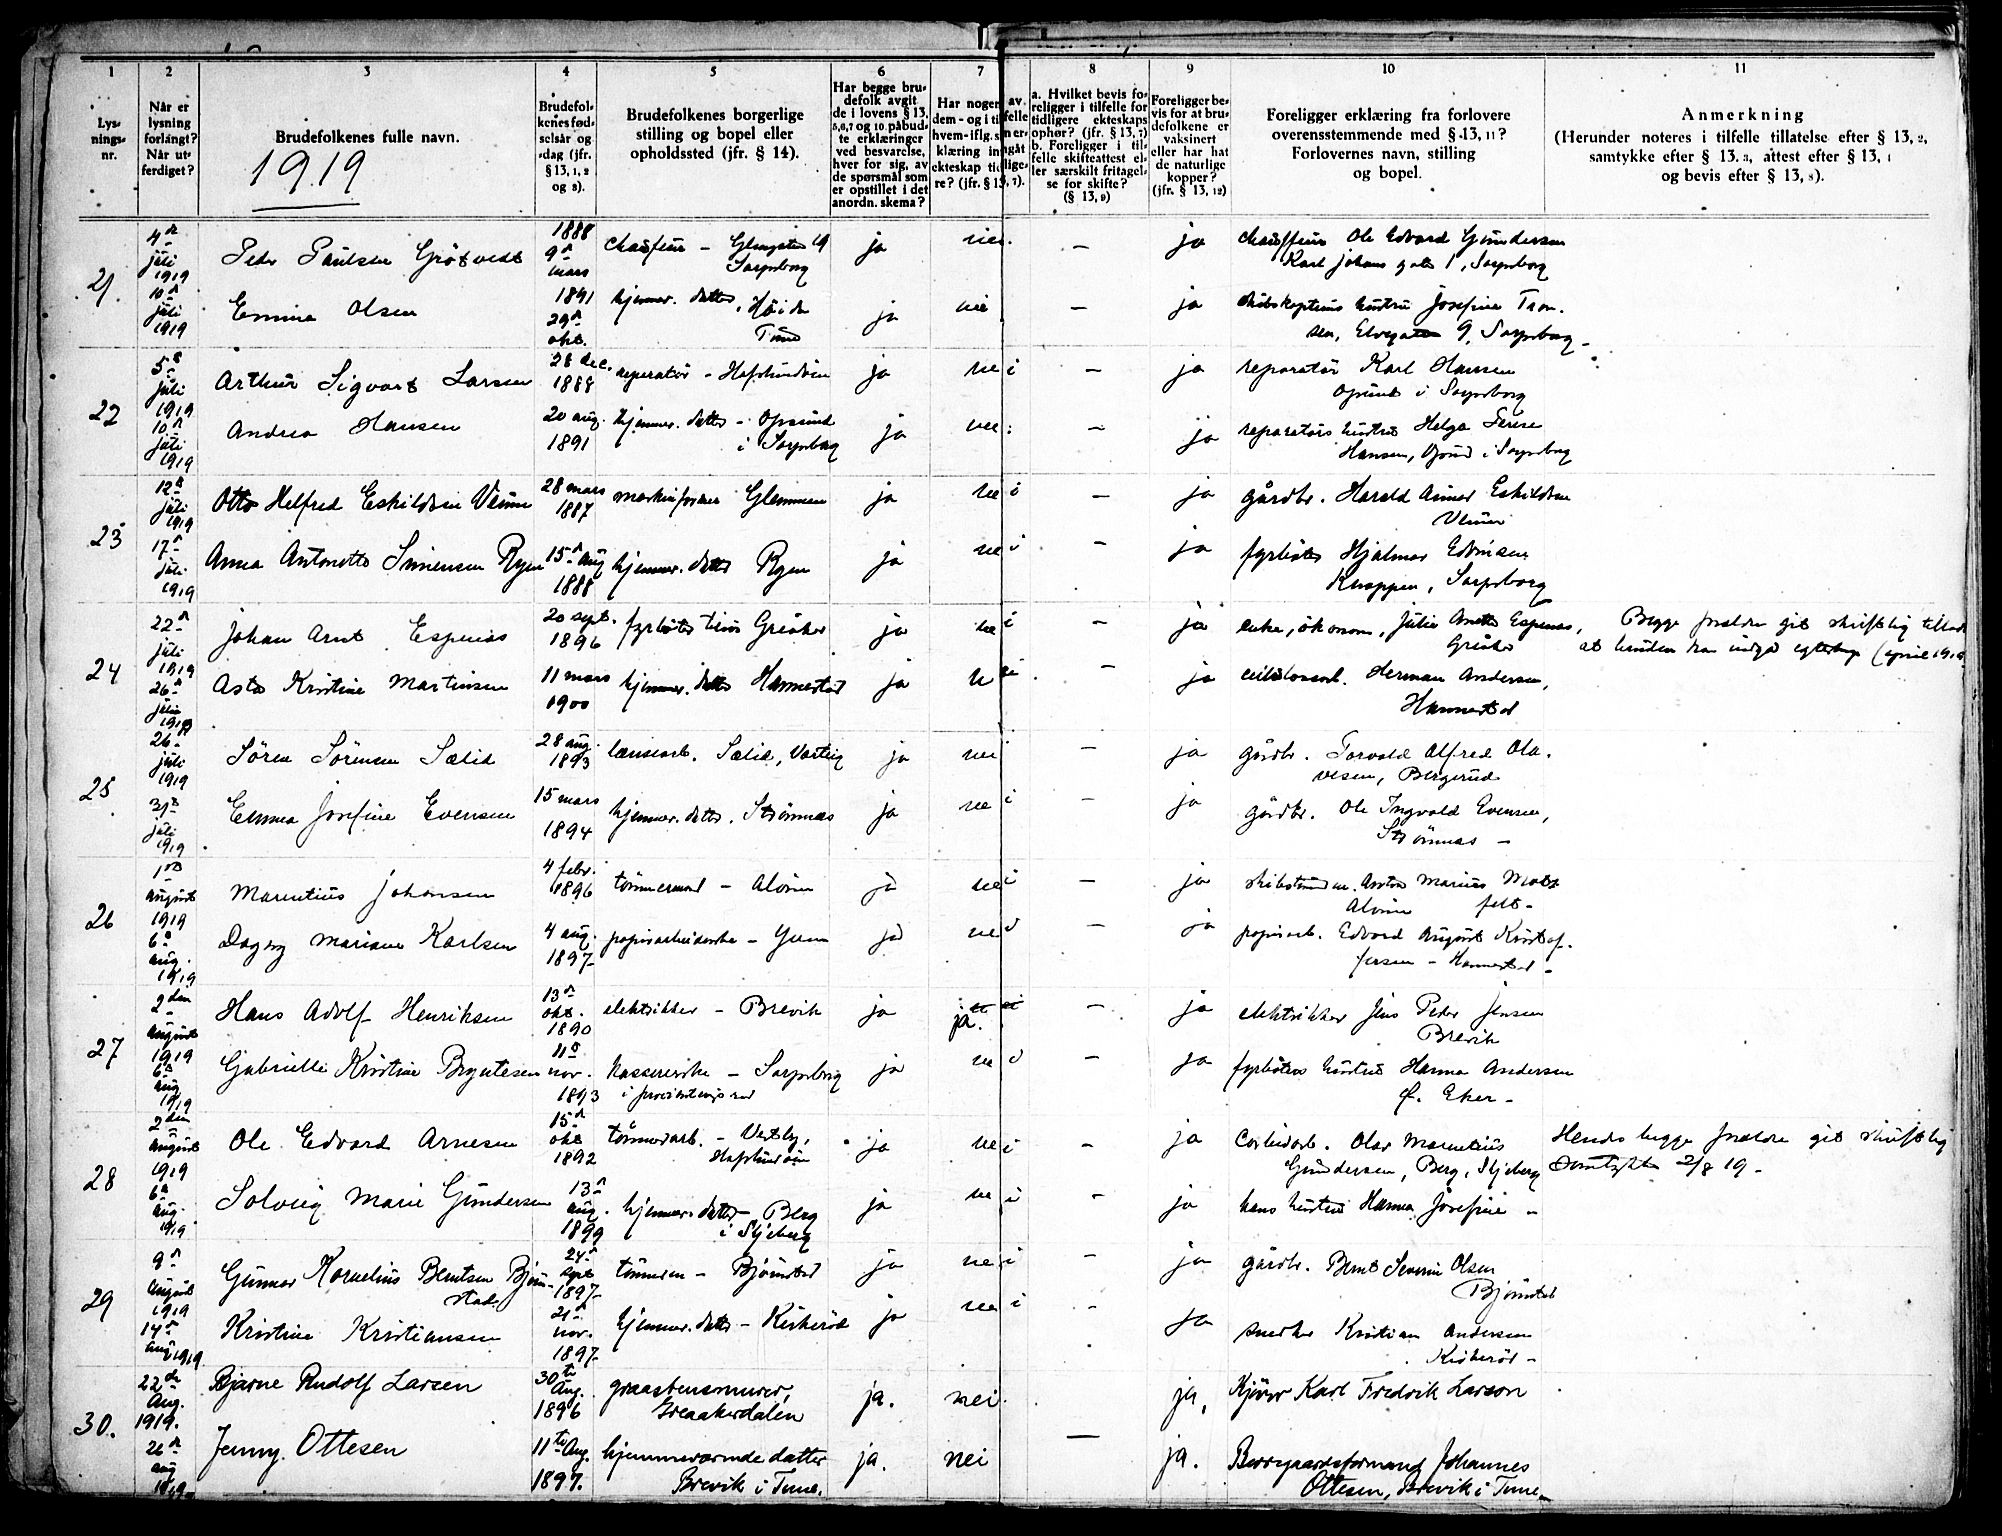 1 2 3 4 5 6 7 8 9 10 11
Lys-
nings-
nr.
Når er
lysning
forlangt?
Når ut-
ferdiget?
Brudefolkenes fulle navn.
1919
Brudefol-
kenes fød-
selsår og
-dag (jfr.
§ 13, 1, 2
og 3).
Brudefolkenes borgerlige
stilling og bopel eller
opholdssted (jfr. § 14).
Har begge bru-
defolk avgit
de i lovens § 13,
5, 6, 7 og 10 påbud-
te erklæringer
ved besvarelse,
hver for sig, av
de spørsmål som
er opstillet i det
anordn. skema?
Har nogen av
dem - og i tilfelle
hvem - iflg. sin er-
klæring indgåt
ekteskap tidlige-
re? (jfr. § 13, 7).
a. Hvilket bevis fo-
religger i tilfelle for
tidligere ekteskaps
ophør? (jfr. § 13, 7)
b. Foreligger i til-
felle skifteattest el-
ler særskilt fritagel-
se for skifte?
(§ 13, 9)
Foreligger be-
vis for at bru-
defolkene er
vaksinert
eller har hat
de naturlige
kopper?
(jfr. § 13, 12)
Foreligger erklæring fra forlovere
overensstemmende med § 13, 11?
Forlovernes navn, stilling
og bopel.
Anmerkning
(Herunder noteres i tilfelle tillatelse efter § 13, 2,
samtykke efter § 13, 3, attest efter § 13, 4
og bevis efter § 13, 8).
21.
4de
juli
1919
10de
juli
1919
Peder Paulsen Grötvedt
1888
9de
mars
chauffeur - Glengsgt 19
Sarpsborg
ja nei - ja
chauffeur Ole Edvard Gundersen
Karl Johans gate 1, Sarpsborg
Emma Olsen
1891
29de
okt.
hjemmev. datter,
Tune
ja nei - ja
hustru Josefine
Elvegaten 9, Sarpsborg
22
5te
juli
1919
10de
juli
1919
Arthur Sigvart Larsen
28 dec.
1888
reparatör - Hafslundsöen
ja nei - ja
reparatör Karl Hansen
Opsund i Sarpsborg
Andrea Hansen
20 aug.
1891
hjemmev. datter - Opsund
i Sarpsborg
ja nei - ja
reparatörs hustru Helga
Hansen, Opsund i Sarpsborg
23
12te
juli
1919
17de
juli
1919
Otto Helfred Eskildsen
28 mars
1887
maskinformer Glemmen
ja nei - ja
gårdbr. Harald Eskildsen
Anna Antonette Simensen Ryen
15de Aug
1888
hjemmev. datter Ryen
ja nei - ja
fyrböter Hjalmar Edvinsen
Knappen, Sarpsborg
24
22de
juli
1919
26de
juli
1919
Johan Arnt Espenæs
20 sept.
1896
fyrböter Greåker
ja nei - ja
enke, ökonom, Julie Anette Espenæs,
Greåker
Begge forældre git skriftlig
at (april 1919
Asta Kristine Martinsen
11 mars
1900
hjemmev. datter Hannestad
ja nei - ja
Herman Andersen,
Hannestad
25
26de
juli
1919
31te
juli
1919
Sören Sörensen Sælid
28 aug.
1893
lensearb. Sælid, Varteig
ja nei - ja
gårdbr. Torvald Alfred Ola-
vesen, Bergerud
Emma Josefine Evensen
15 mars
1894
hjemmev. datter, Strömnæs
ja nei - ja
gårdbr. Ole Ingvald Evensen,
Strömnæs -
26
1ste
august
1919
6te
aug.
1919
Marentius Johansen
4 febr.
1896
tömmermand - Alvim
ja nei - ja
Anton Marius
Alvim
Dagny Mariane Karlsen
4 aug.
1897-
papirarbeiderske -
ja nei - ja
papirarb. Edvard August Kristof-
fersen - Hannestad -
27
2den
august
1919
6te
aug
1919
Hans Adolf Henriksen
13de
okt.
1890
elektrikker - Brevik
ja nei ja. - ja
elektrikker Jens Peder Jensen
Brevik
Gabrielle Kristine Bryntesen
11te
nov.
1893
kassererske - Sarpsborg
i
ja nei - ja
fyrböters hustru Hanna Andersen
Ø. Eker -
28
2den
august
1919
6te
aug.
1919
Ole Edvard Arnesen
15de
okt
1892
tömmerarb. -
Hafslundsöen
ja nei - ja
Olav Marentius
Gundersen, Berg, Skjeberg
Hendes begge forældre git skriftlig
samtykke 2/8 19 -
Solveig Marie Gundersen
13de
aug.
1899
hjemmev. datter - Berg
i Skjeberg
ja nei - ja
hans hustru Hanna Josefine -
29
9de
august
1919
14de
aug 1919
Gunnar Kornelius Berntsen Björn-
stad.
24de
sept
1897-
tömmerm - Björnstad
ja nei - ja
gårdbr. Bernt Severin Olsen
Björnstad
Kristine Kristiansen
21de
nov.
1897-
hjemmev. datter - Kirkeröd
ja nei - ja
snedker Kristian Andersen
Kirkeröd -
30.
22de
Aug.
1919.
26de
aug
1919
Bjarne Rudolf Larsen
30te
Aug.
1896
graastensmurer,
Greaakerdalen
ja. nei. ja,
Kjörer Karl Fredrik Larson
Jenny Ottesen
11te Aug.
1897.
hjemmeværende datter
Brevik i Tune.
ja. nei — ja.
Borregaardsformand Johannes
Ottesen, Brevik i Tune.